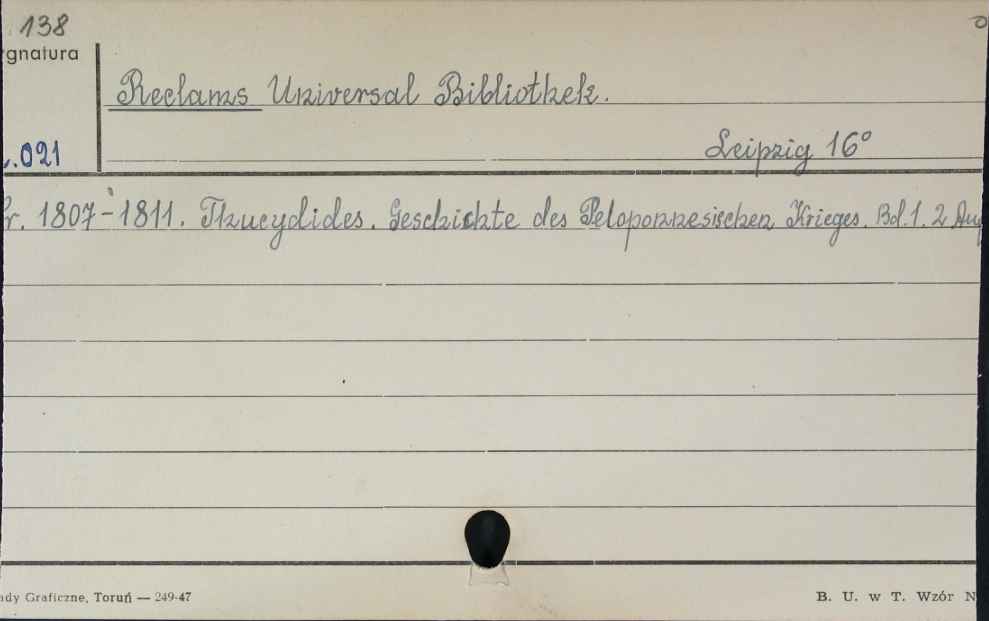 138
gnatura
Reclams Universal Bibliothek.
.021
Leipzig 16°
r. 1807-1811. Thucydides. Geschichte des Peloponnesischen Krieges. Bd. 1. 2 Auf
ady Graficzne, Toruń — 249-47
B. U. w T. Wzór N